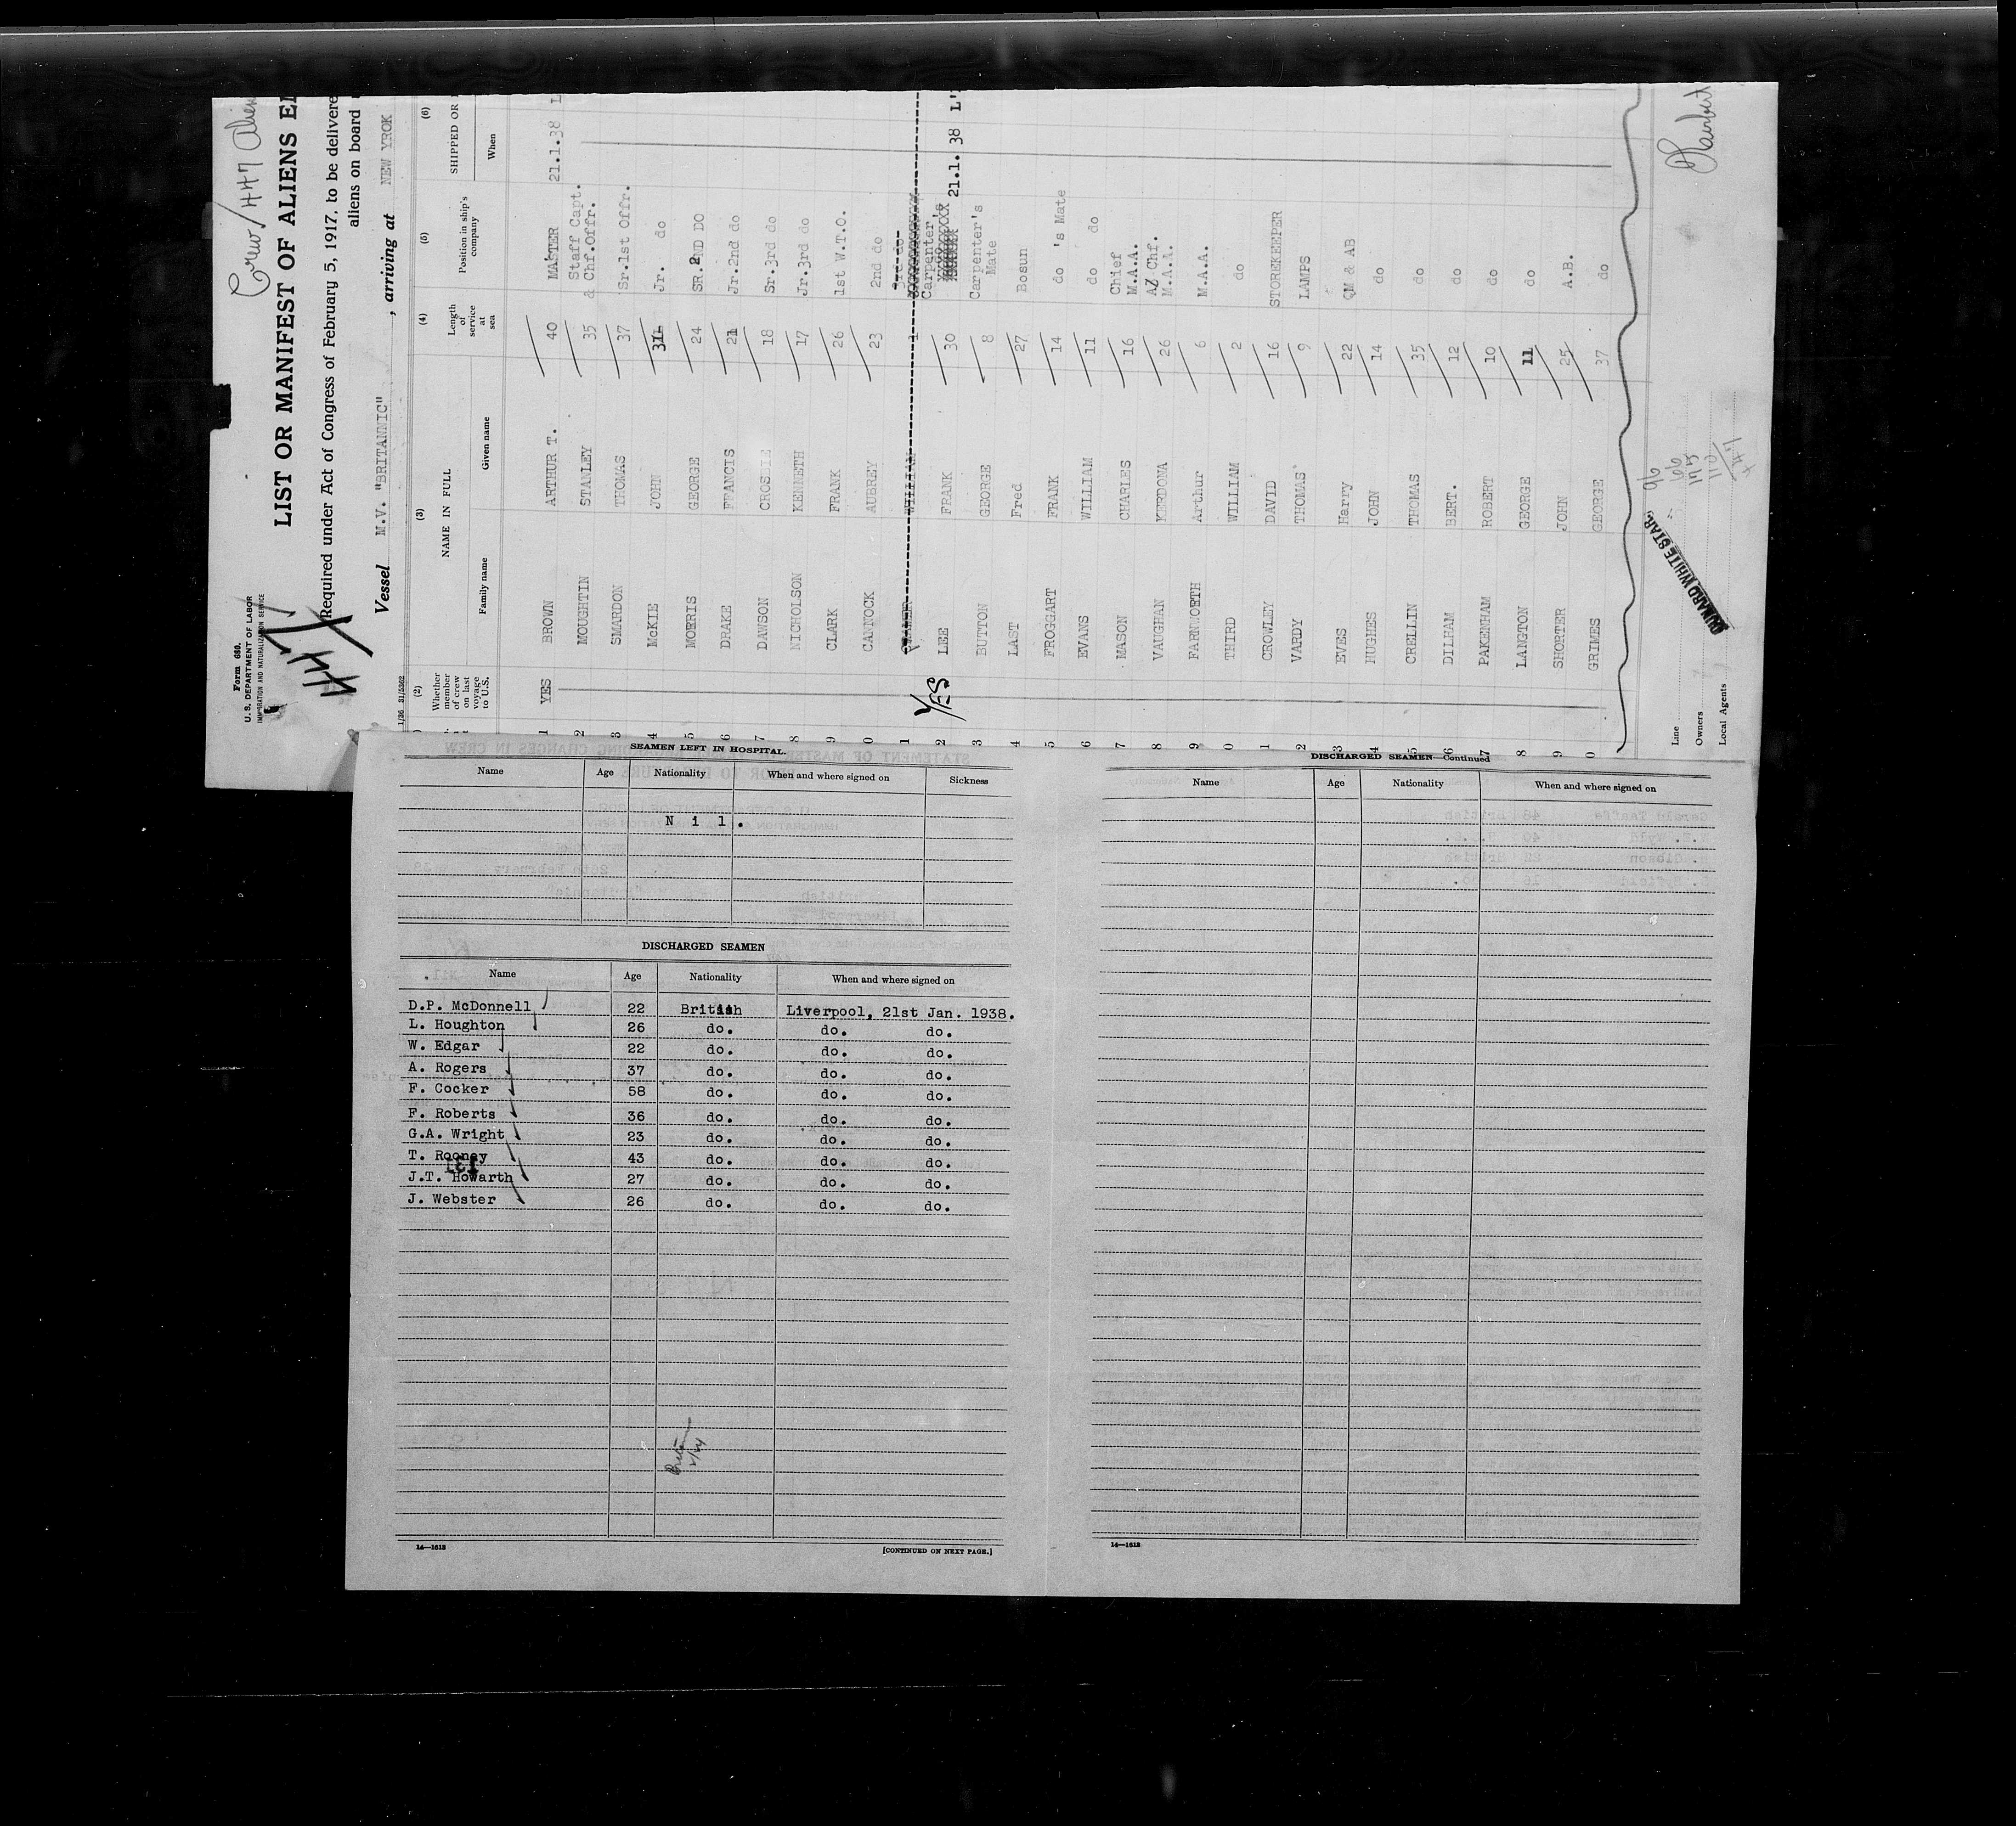 Form 680.
U. S. DEPARTMENT OF LABOR
IMMIGRATION AND NATURALIZATION SERVICE
Crew/447 Alien
447
LIST OR MANIFEST OF ALIENS
Required under Act of Congress of February 5, 1917, to be delivere
aliens on board
Vessel M.V. "BRITANNIC" , arriving at NEW YROK
1/36 31/5362
(2) (3) (4) (5) (6)
Whether member of crew on last voyage to U.S. NAME IN FULL Length of service at sea Position in ship's company SHIPPED OR
Family name Given name When
1 YES BROWN ARTHUR T. 40 MASTER 21.1.38 L
2 MOUGHTIN STANLEY 35 Staff Capt. & Chf.Offr.
3 SMARDON THOMAS 37 Sr.1st Offr.
4 McKIE JOHN 31 Jr. do
5 MORRIS GEORGE 24 SR.2ND DO
6 DRAKE FFANCIS 21 Jr.2nd do
7 DAWSON CROSBIE 18 Sr.3rd do
8 NICHOLSON KENNETH 17 Jr.3rd do
9 CLARK FRANK 26 1st W.T.O.
0 CANNOCK AUBREY 23 2nd do
1 WILLIAM 1 3rd do
2 YES LEE FRANK 30 Carpenter 21.1.38 L'
3 BUTTON GEORGE 8 Carpenter's Mate
4 LAST Fred 27 Bosun
5 FROGGART FRANK 14 do 's Mate
6 EVANS WILLIAM 11 do do
7 MASON CHARLES 16 Chief M.A.A.
8 VAUGHAN 26 A/ Chf. M.A.A.
9 FARNWORTH Arthur 6 M.A.A.
0 THIRD WILLIAM 2 do
1 CROWLEY DAVID 16 STOREKEEPER
2 VARDY THOMAS 9 LAMPS
3 EVES Harry 22 QM & AB
4 HUGHES JOHN 14 do
5 CRELLIN THOMAS 35 do
6 DILHAM BERT. 12 do
7 PAKENHAM ROBERT 10 do
8 LANGTON GEORGE 11 do
9 SHORTER JOHN 25 A.B.
0 GRIMES GEORGE 37 do
Line
Owners
Local Agents
CUNARD WHITE STAR
96
66
110
447
SEAMEN LEFT IN HOSPITAL.
Name Age Nationality When and where signed on Sickness
N i l .
DISCHARGED SEAMEN
Name Age Nationality When and where signed on
D.P. McDonnell 22 British Liverpool, 21st Jan. 1938.
L. Houghton 26 do. do. do.
W. Edgar 22 do. do. do.
A. Rogers 37 do. do. do.
F. Cocker 58 do. do. do.
F. Roberts 36 do. do. do.
G.A. Wright 23 do. do. do.
T. Rooney 43 do. do. do.
J.T. Howarth 27 do. do. do.
J. Webster 26 do. do. do.
14—1613
[CONTINUED ON NEXT PAGE.]
DISCHARGED SEAMEN—Continued
Name Age Nationality When and where signed on
14—1613